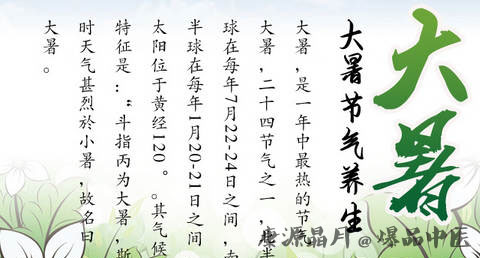 大暑
大暑节气养生
大暑，是一年中最热的节气。
大暑，二十四节气之一，北半
球在每年7月22-24日之间，南
半球在每年1月20-21日之间
太阳位于黄经120°。其气候
特征是：“斗指丙为大暑，斯
时天气甚烈於小暑，故名曰
大暑。
康源晶月@爆品中医